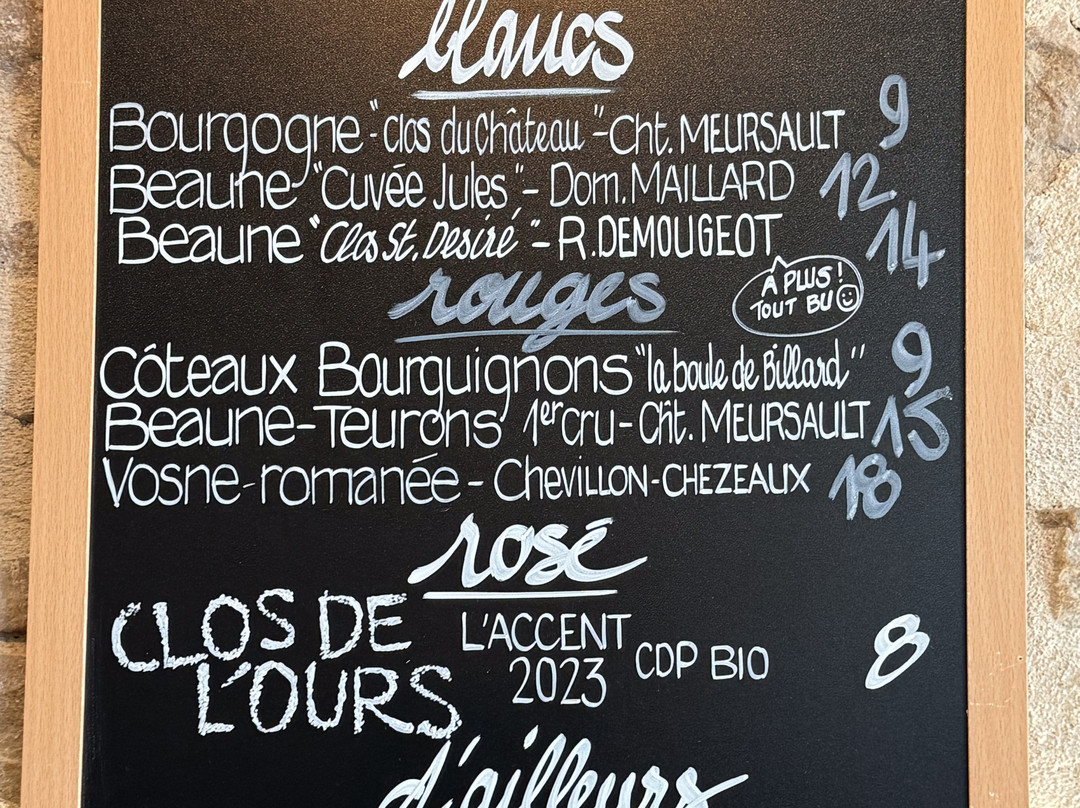 blancs
Bourgogne - "Clos du Château" - Cht. MEURSAULT 9
Beaune "Cuvée Jules" - Dom. MAILLARD 12
Beaune "Clos St. Desiré" - R. DEMOUGEOT 14
A PLUS !
TOUT BU
rouges
Côteaux Bourguignons "la boule de Billard" 9
Beaune-Teurons 1er cru - Cht. MEURSAULT 15
Vosne-romanée - Chevillon-CHEZEAUX 18
rosé
CLOS DE L'OURS
L'ACCENT 2023
CDP BIO
8
d'ailleurs